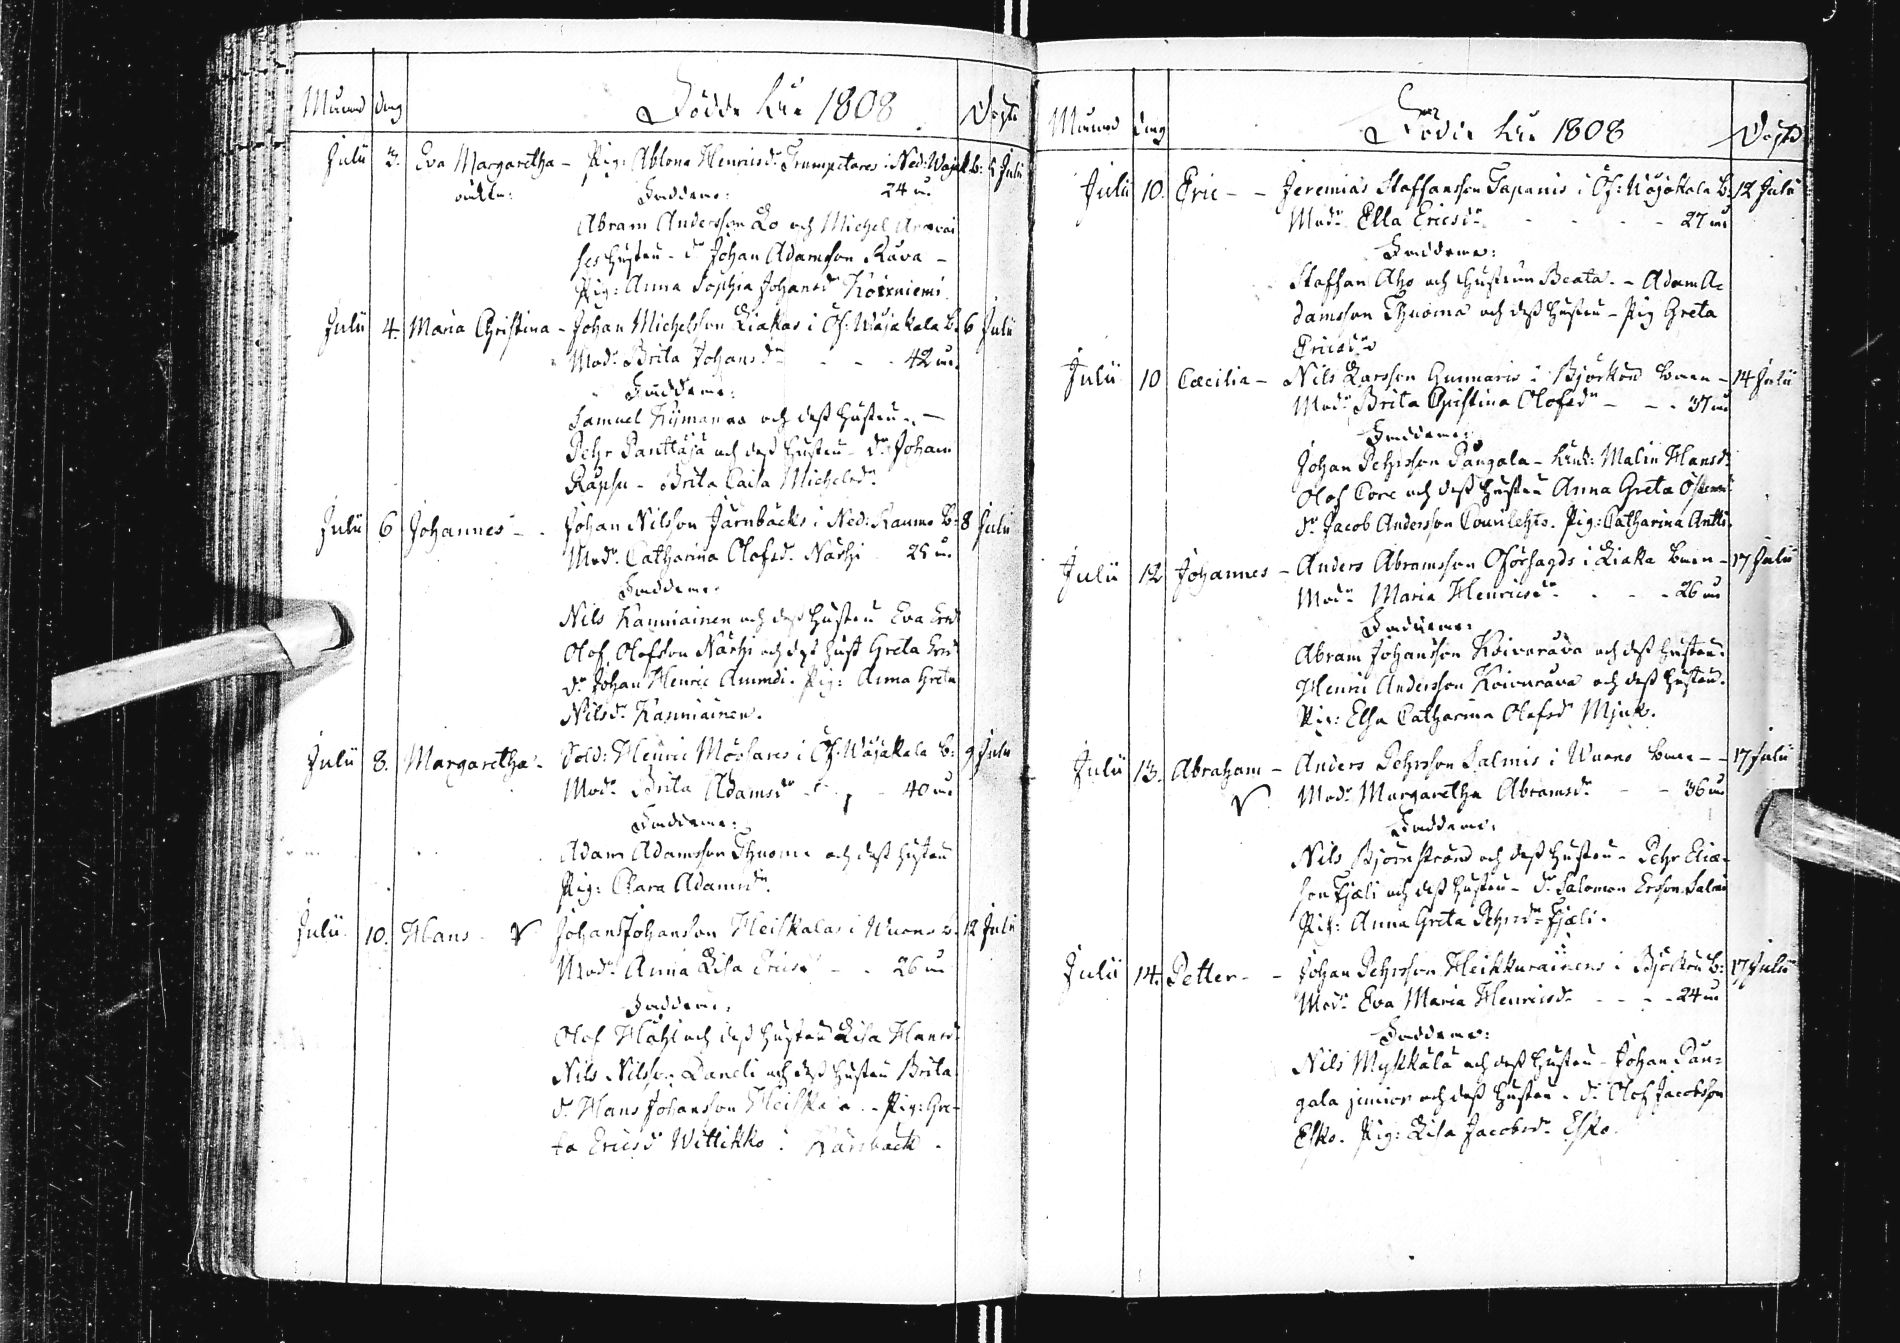 Månad dag Födde åhr 1808 Döpte
Julii 3. Eva Margaretha – Pig: Ablona Henricsdr Trumpetares i Ned: Wojak. b: 5 Julii
oäkta: Faddrarne: 24 år
Abram Andersson Lo och Michel
hustru – dr Johan Adamsson Rava –
Pig: Anna Sophia Johansdr Koixniemi
Julii 4. Maria Christina – Johan Michelsson Liakas i Öf: Wojakala B: 6 Julii
Modr Brita Johansdr – – – 42 år
Faddrarne:
Samuel Kymanas och dess hustru –
Pehr Panttaja och dess hustru – dr Johan
Rapsu – Brita Caisa Michelsdr
Julii 6 Johannes – Johan Nilsson Järnbacks i Ned: Kaumo B: 8 Julii
Modr Catharina Olofsdr Narhi 25 år
Faddrarne:
Nils Kanniainen och dess hustru Eva Ersdr
Olof Olofsson Närhi och dess hust Greta Ersdr
dr Johan Henric Ammdi. Pig: Anna Greta
Nilsdr Kanniainen.
Julii 8. Margaretha – Sold: Henric Moslares i Öf: Wäjakala B: 9 Julii
Modr Brita Adamsdr – – 40 år
Faddrarne:
Adam Adamsson Thuoma och dess hustru
Pig: Clara Adamsdr
Julii 10. Hans – Johan Johansson Heiskalas i Wuons b. 12 Julii
Modr Anna Lisa Ericsdr – – 26 år
Faddrarne:
Olof Håhl och dess hustru Lisa Hansdr
Nils Nilsson Daneli och dess hustru Brita
dr Hans Johansson Heiskala – Pig: Gre-
ta Ericsdr Wittikko i Karsback.
Månad dag Födde åhr 1808 Döpte
Julii 10. Eric – – Jeremias Staffansson Tapanis i Öf: Wojakala b. 12 Julii
Modr Ella Ericsdr – – – – 27 år
Faddrarne:
Staffan Aho och hustrun Beata. – Adam A-
damsson Thuoma och dess hustru – Pig Greta
Ericsdr
Julii 10 Cæcilia – Nils Larsson Gunnaris i Björkön boen – 14 Julii
Modr Brita Christina Olofsdr – – 37 år
Faddrarne:
Johan Pehrsson Pangala – Enk: Malin Hansdr
Olof Core och dess hustru Anna Greta
dr Jacob Andersson Courilehto. Pig: Catharina Antti.
Julii 12 Johannes – Anders Abramsson Oförsagds i Liaka boen – 17 Julii
Modr Maria Henricsdr – – – 26 år
Faddrarne:
Abram Johansson Koivurava och dess hustru.
Henric Andersson Koivurava och dess hustru.
Pig: Elsa Catharina Olofsdr Mjuk.
Julii 13. Abraham – Anders Pehrsson Salmis i Wuono boen – – 17 Julii
Modr Margaretha Abramsdr – – 36 år
Faddrarne:
Nils Björnstrand och dess hustru – Pehr Elias-
son Fjæli och dess hustru – dr Salomon Ersson Salmi
Pig: Anna Greta Pehrsdr Fjæli.
Julii 14. Petter – – Johan Pehrsson Heikkurainens i Björkön b: 17 Julii
Modr Eva Maria Henricsdr – – – 24 år
Faddrarne:
Nils Mykkälä och dess hustru – Johan Pan-
gala junior och dess hustru – dr Olof Jacobsson
Esko. Pig: Lisa Jacobsdr Esko.